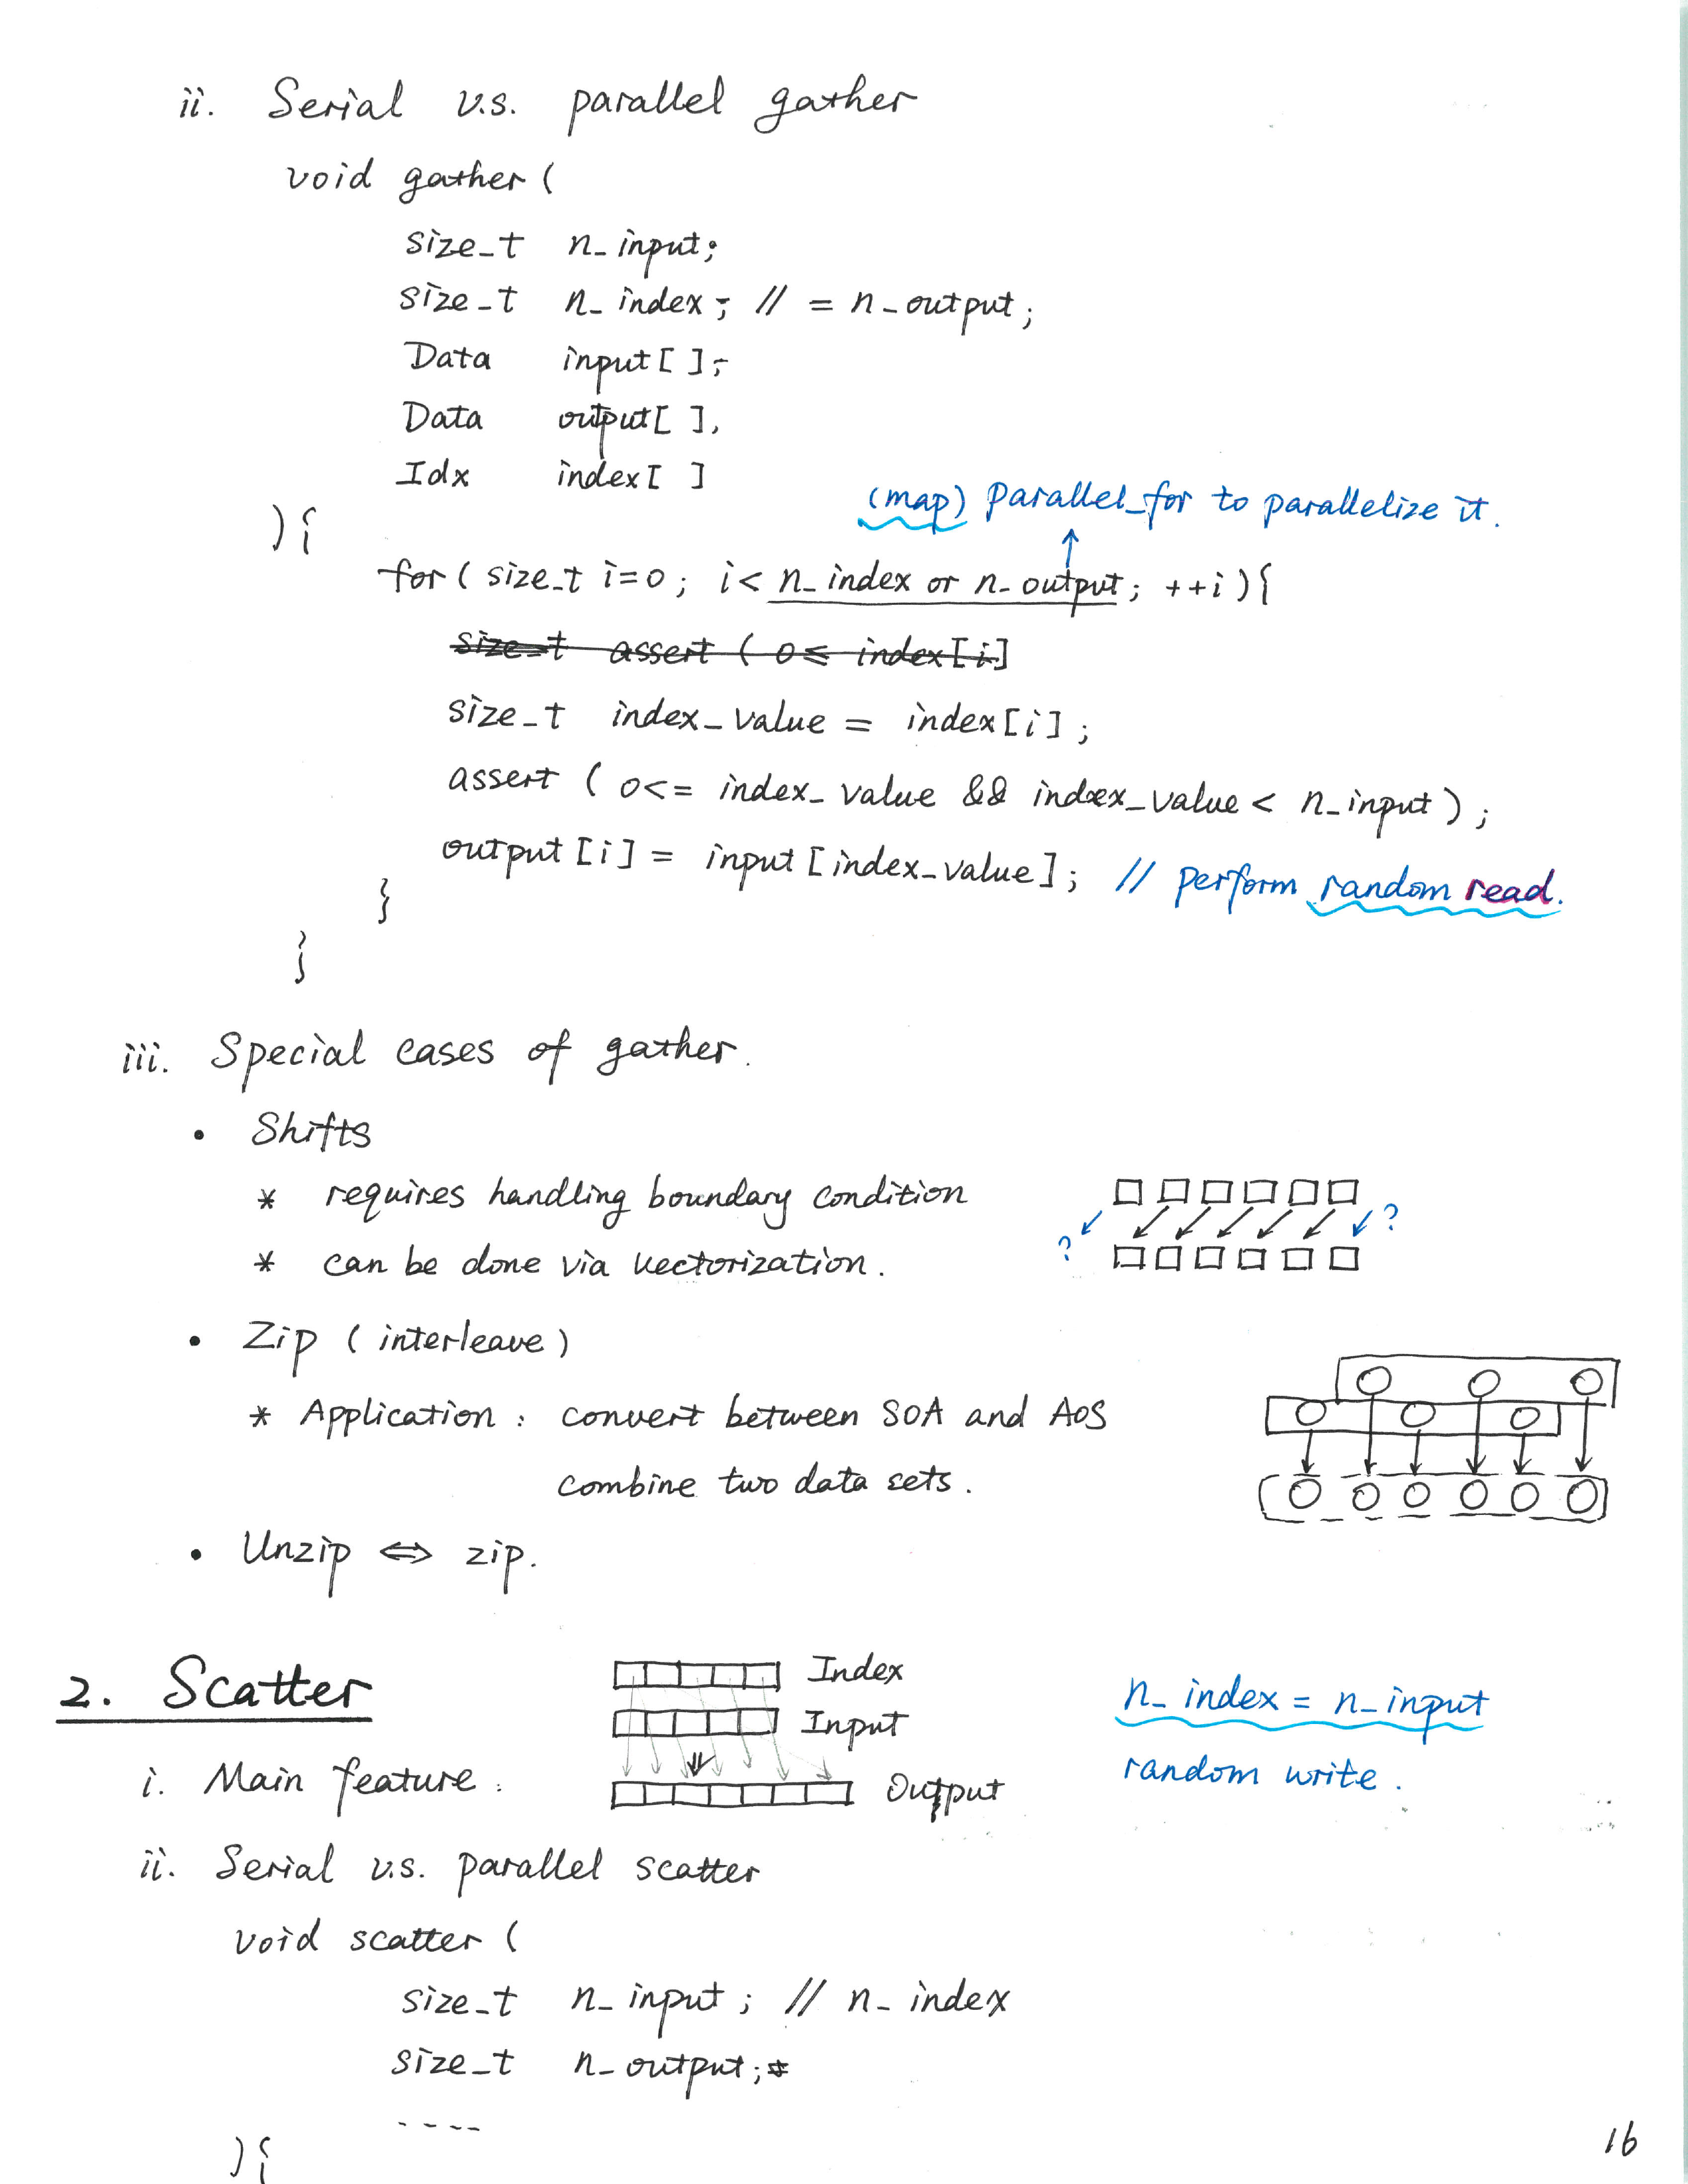 ii. Serial v.s. parallel gather
void gather (
size_t n_input;
size_t n_index; // = n_output;
Data input[ ];
Data output[ ],
Idx index[ ]
(map) parallel_for to parallelize it.
){
for ( size_t i=0 ; i< n_index or n_output ; ++i ){
size_t assert ( 0≤ index[i]
size_t index_value = index[i] ;
assert ( 0<= index_value && index_value < n_input ) ;
output[i] = input[index_value] ; // perform random read.
}
}
iii. Special cases of gather.
• Shifts
* requires handling boundary condition
? ?
* can be done via vectorization.
• Zip ( interleave )
* Application : convert between SOA and AoS
combine two data sets.
• Unzip ⇔ zip.
2. Scatter
Index
Input
n_index = n_input
i. Main feature :
Output
random write.
ii. Serial v.s. parallel scatter
void scatter (
size_t n_input ; // n_index
size_t n_output;*
----
){
16